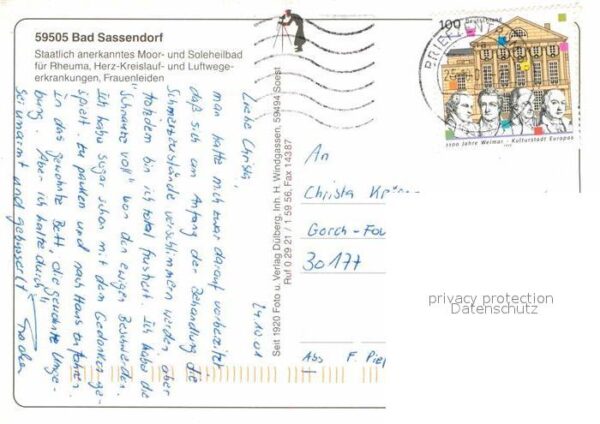 59505 Bad Sassendorf
Staatlich anerkanntes Moor- und Soleheilbad
für Rheuma, Herz-Kreislauf- und Luftwege-
erkrankungen, Frauenleiden
24.10.01
Liebe Christa,
man hatte mich zwar darauf vorbereitet
daß sich am Anfang der Behandlung die
Schmerzzustände verschlimmern werden, aber
trotzdem bin ich total frustriert. Ich habe die
"Schnauze voll" von den ewigen Beschwerden.
Ich habe sogar schon mit dem Gedanken ge-
spielt zu packen und nach Haus zu fahren.
In das gewohnte Bett, die gewohnte Umge-
bung. Aber ich halte durch!
Sei umarmt und gebusserlt
Seit 1920 Foto u. Verlag Dülberg, Inh. H. Windgassen, 59494 Soest
Ruf 0 29 21 / 1 59 56, Fax 14387
100 Deutschland
BRIEFZENTR
25
1100 Jahre Weimar - Kulturstadt Europas
1999
An
Christa
Gorch-Fo
30177
Abs F. Pie
privacy protection
Datenschutz